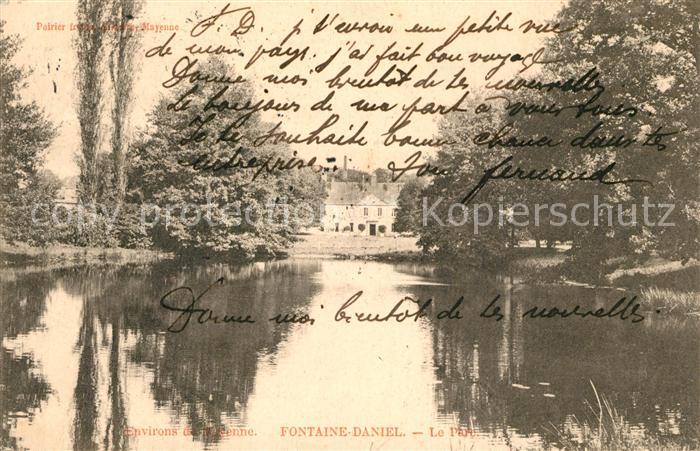 Poirier Mayenne
F. D. j t'envoie une petite vue
de mon pays. j'ai fait bon voyage
Donne moi bientôt de tes nouvelles
Le bonjour de ma part à vous tous
Je te souhaite bonne chance dans tes
entreprises. Ton fernand
copy protection Kopierschutz
Donne moi bientôt de tes nouvelles.
Environs de Mayenne. FONTAINE-DANIEL. — Le Parc.